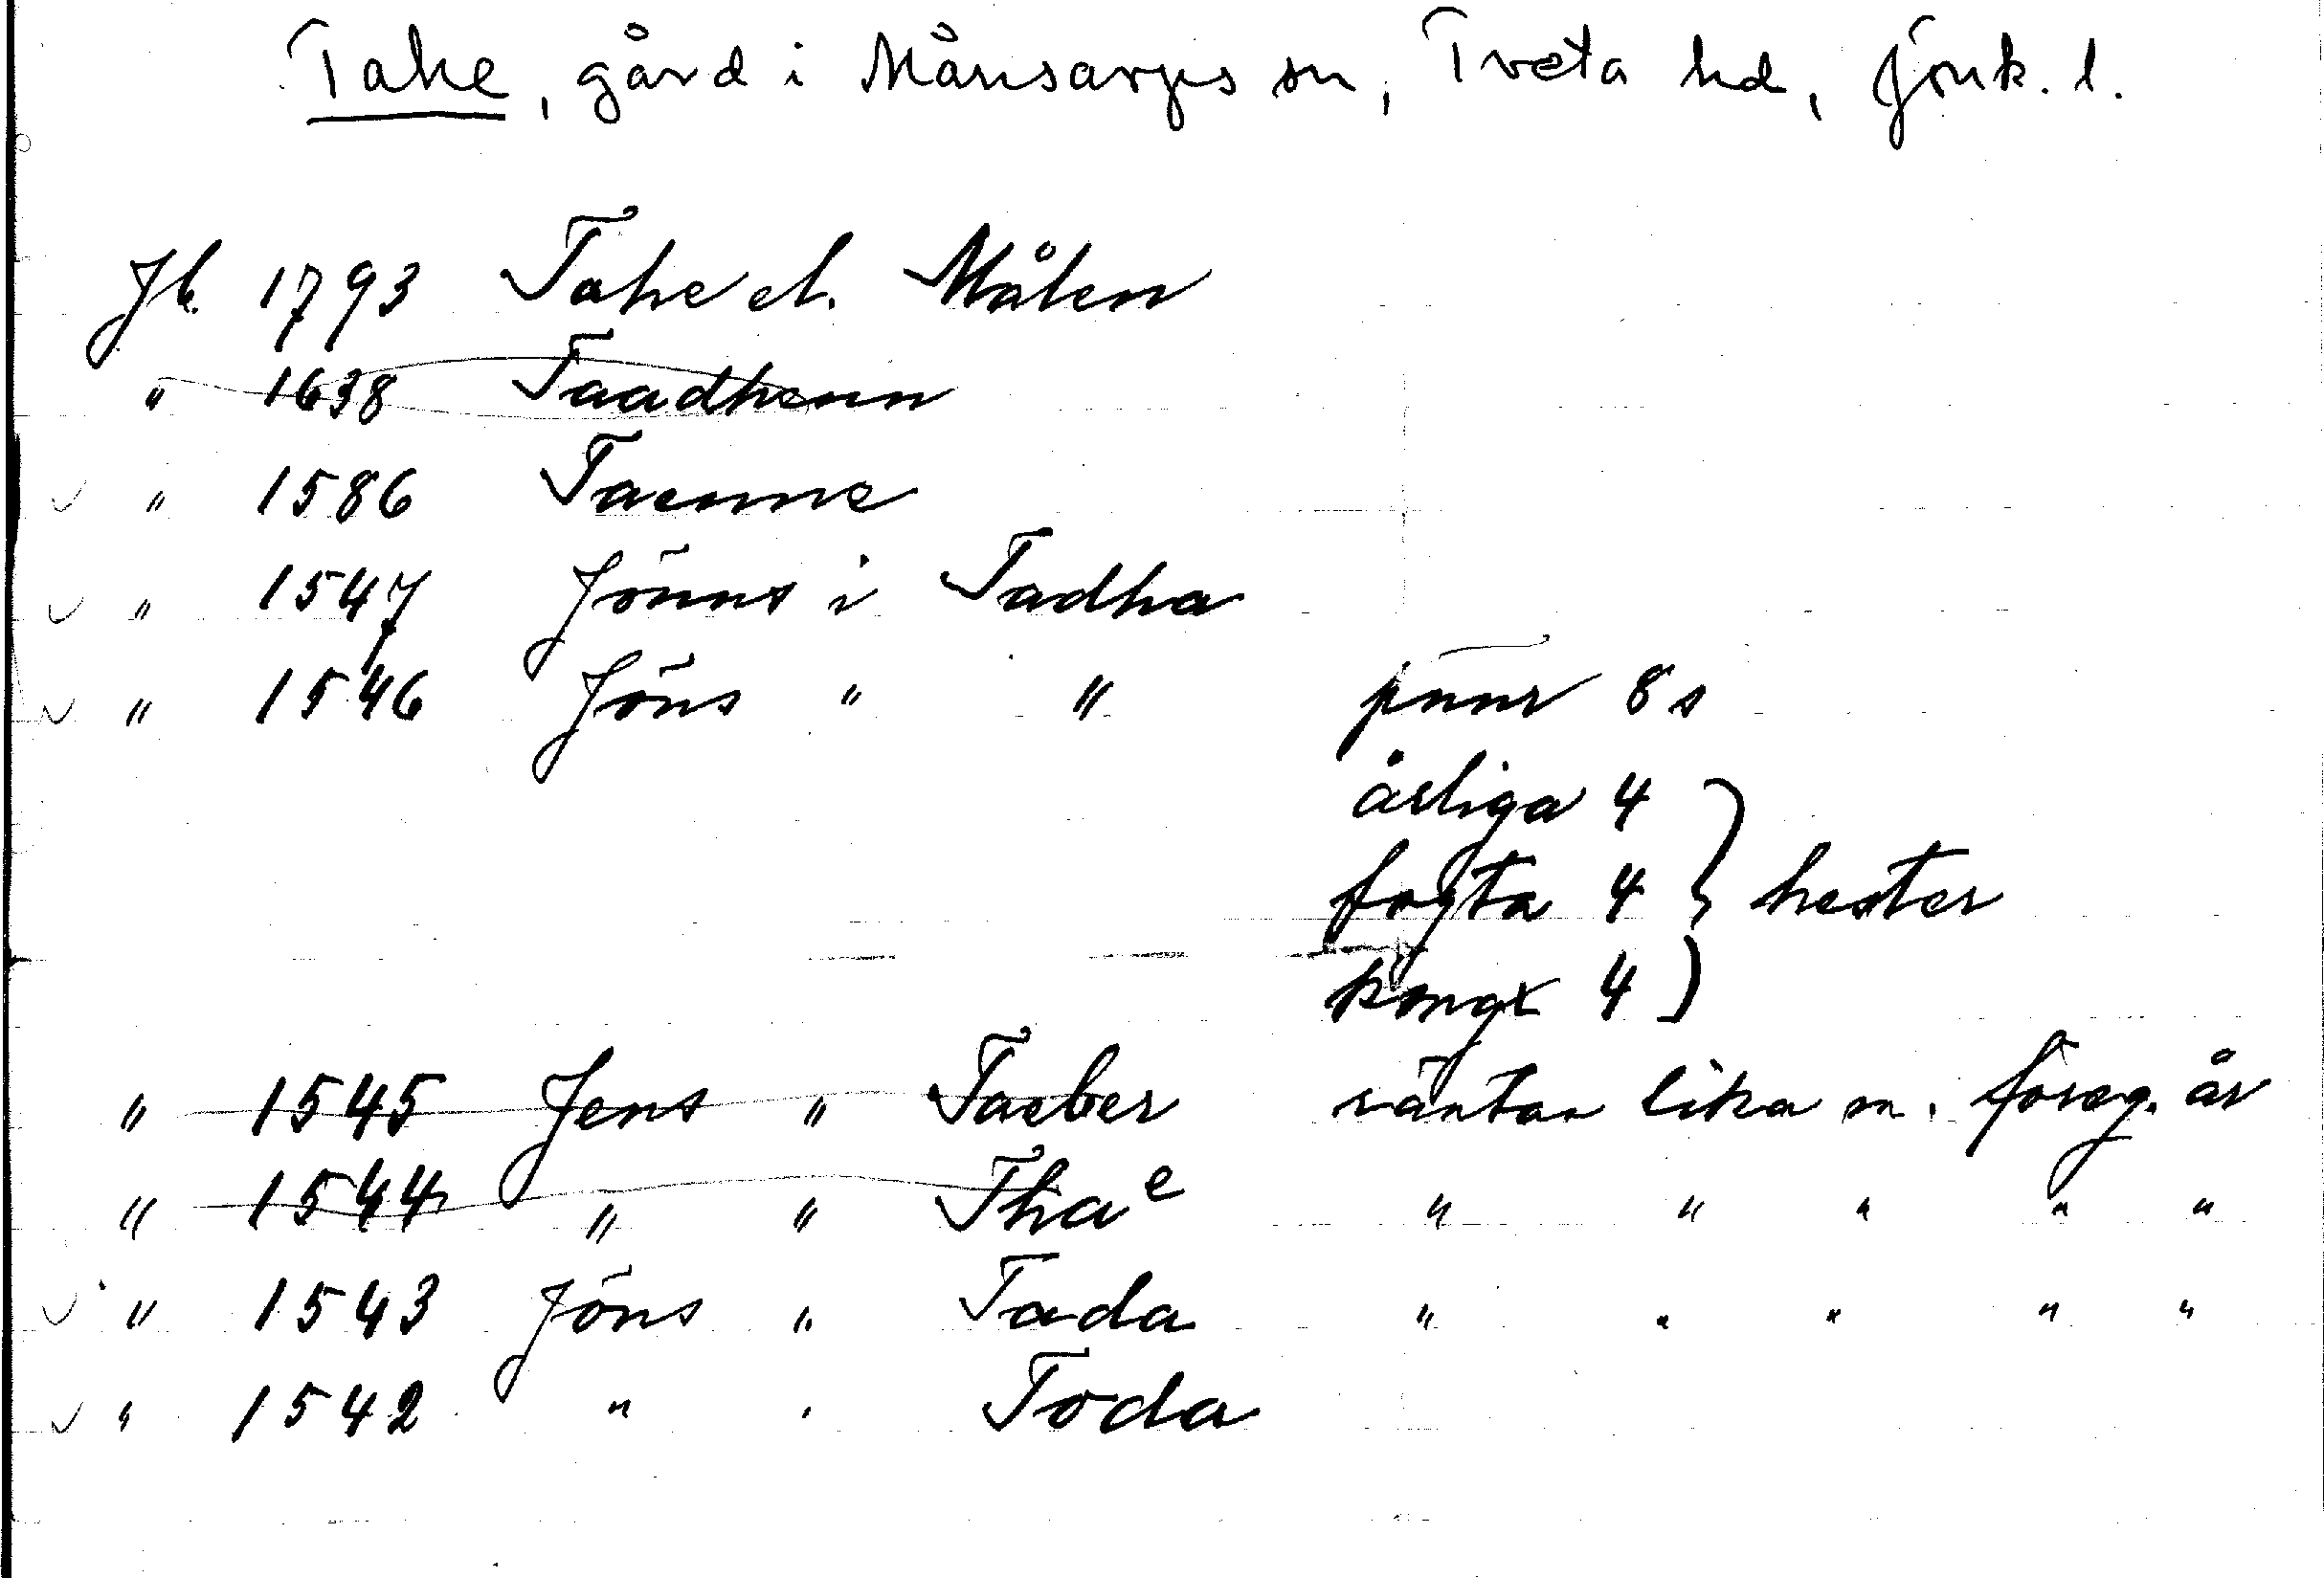 Tahe, gård i Månsarps sn, Tveta hd, Jönk. l.
Jb. 1793 Tahe el. Målen
" 1638 Taadhenn
" 1586 Taenne
" 1547 Jönns i Tadha
" 1546 Jöns " " pnnr 8 s
årliga 4
fogta 4 } hester
kongx 4
" 1545 Jens " Taeber räntan lika m. föreg. år
" 1544 " " Thae " " " " "
" 1543 Jöns " Tada " " " " "
" 1542 " " Toda